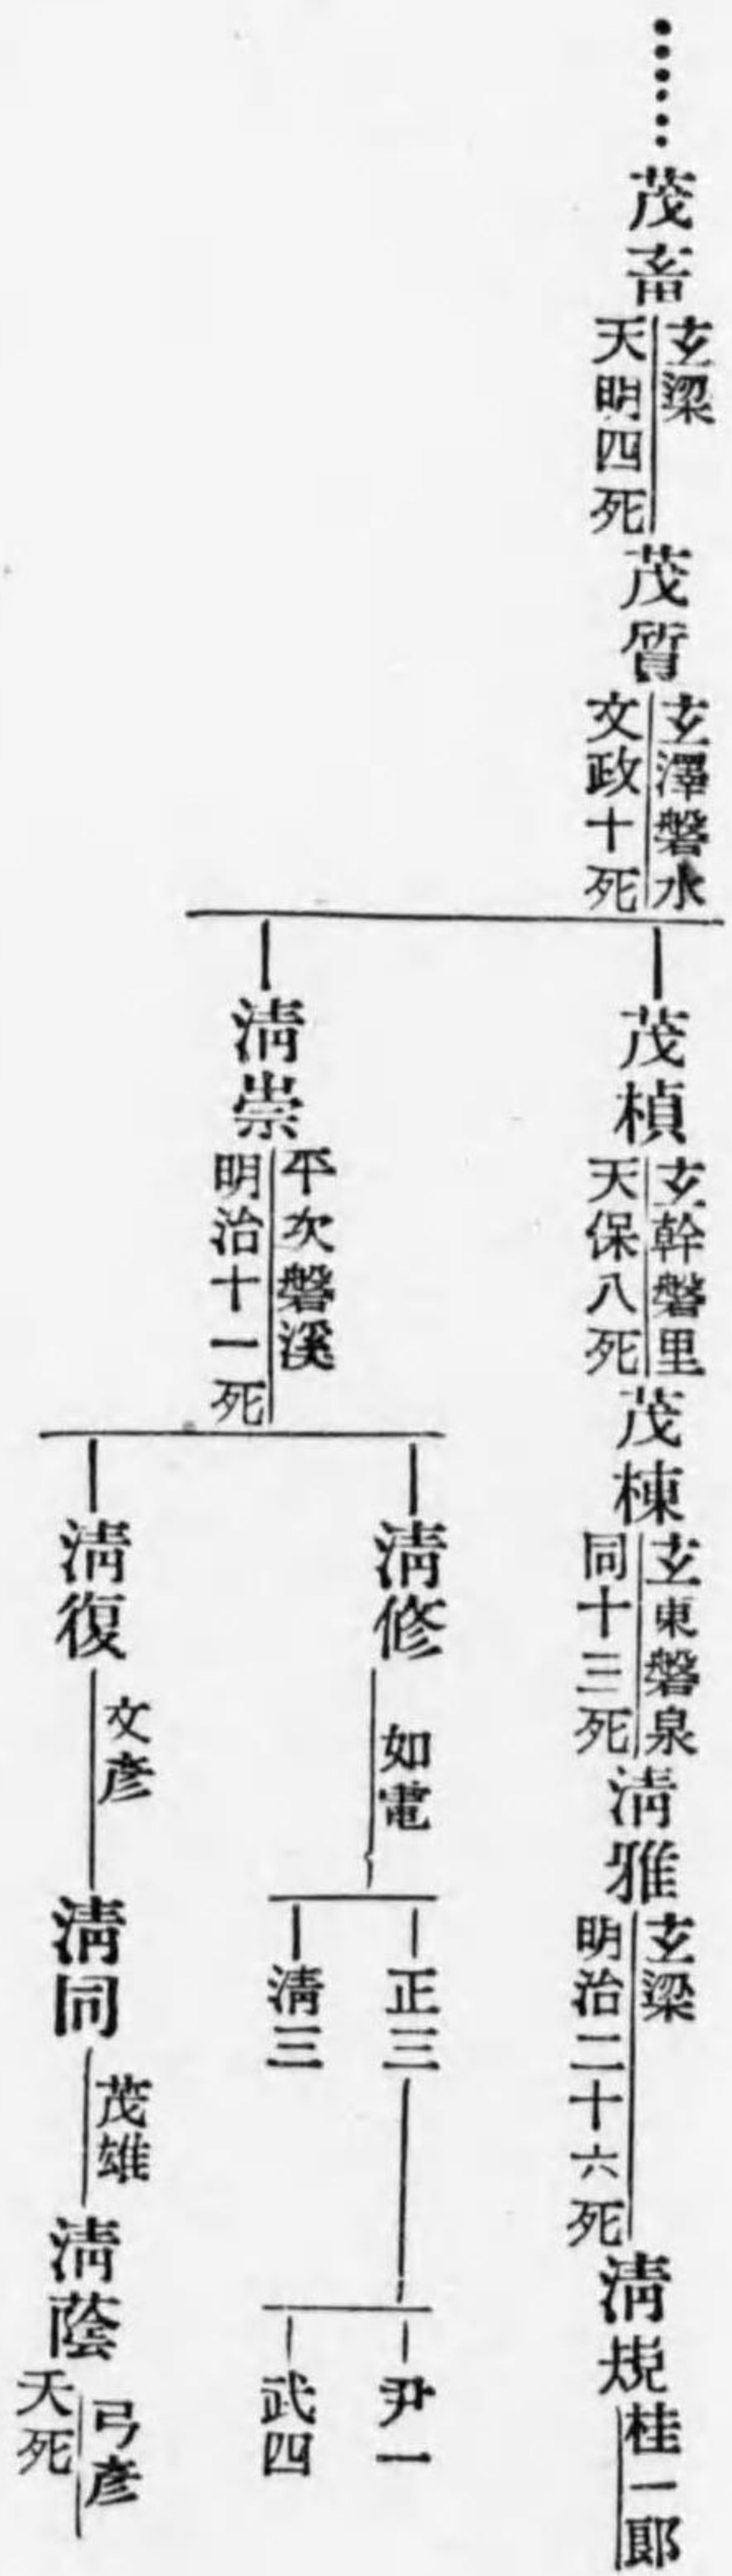 ……茂畜
玄梁
天明四死
茂質
玄澤磐水
文政十死
茂楨
玄幹磐里
天保八死
茂棟
玄東磐泉
同十三死
淸雅
玄梁
明治二十六死
淸規
桂一郞
淸崇
平次磐溪
明治十一死
淸修
如電
正三
尹一
武四
淸三
淸復
文彥
淸同
茂雄
淸蔭
弓彥
夭死